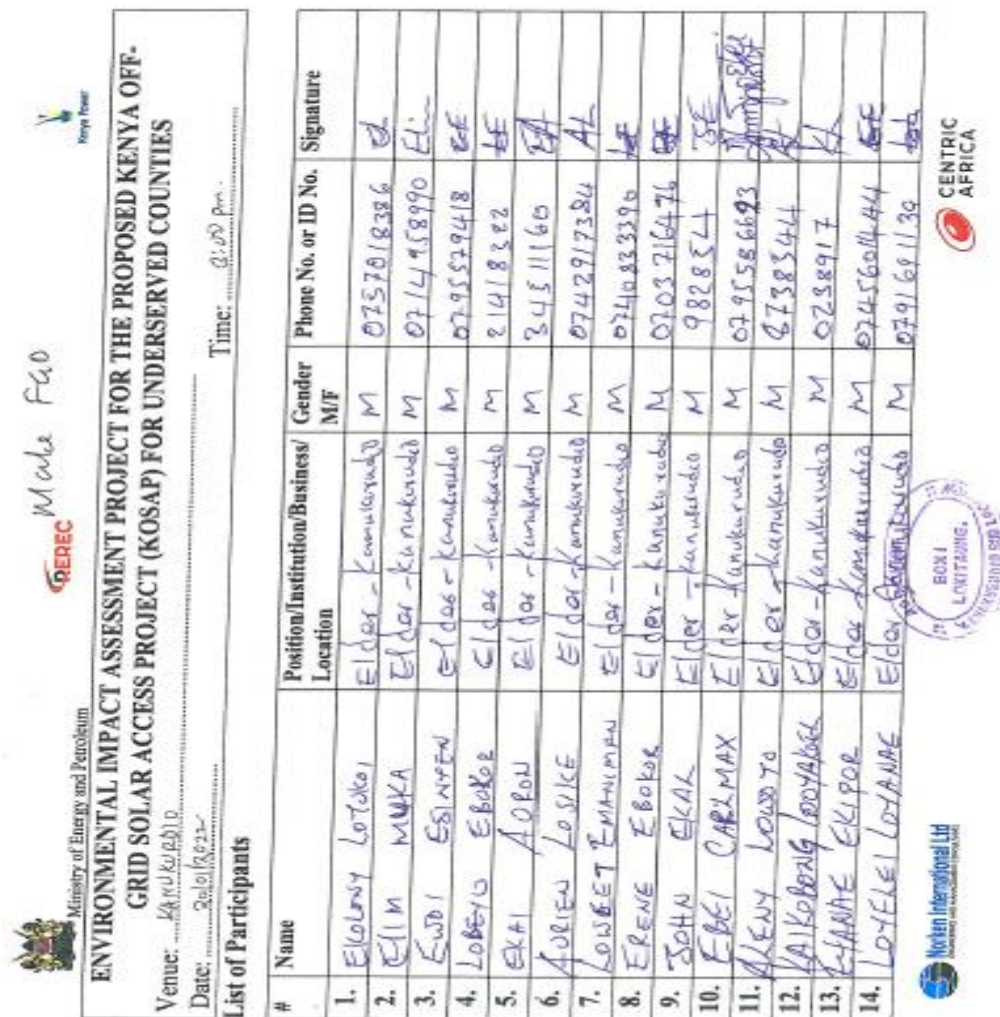 Ministry of Energy and Petroleum
REREC
Male FGD
Kenya Power
ENVIRONMENTAL IMPACT ASSESSMENT PROJECT FOR THE PROPOSED KENYA OFF-
GRID SOLAR ACCESS PROJECT (KOSAP) FOR UNDERSERVED COUNTIES
Venue: KANUKURDIO
Date: 20/01/2022 Time: 2:00 pm.
List of Participants
# Name Position/Institution/Business/ Location Gender M/F Phone No. or ID No. Signature
1. EKOLONY LOTUKOI Elder - Kanukurudio M 0757018386
2. ELIM MUKA Elder - Kanukurudio M 0714958990
3. EWOI ESINYEN Elder - Kanukurudio M 0795579418
4. LOBEYO EBOKOR Elder - Kanukurudio M 21418322
5. EKAI AORON Elder - Kanukurudio M 34511160
6. AURIEN LOSIKE Elder - Kanukurudio M 0742917384
7. LOWOET EMANIMAN Elder - Kanukurudio M 0740833390
8. ERENE EBOKOR Elder - Kanukurudio M 0703716476
9. JOHN EKAL Elder - Kanukurudio M 9828354
10. EBEI CARLMAX Elder - Kanukurudio M 0795586693
11. ALENY Elder - Kanukurudio M 8738544
12. Elder - Kanukurudio M 0238917
13. EKIPOR Elder - Kanukurudio M 0745601444
14. LOYEREI LOYANAE Elder M 0791691130
BOX 1
LOKITAUNG.
Norken International Ltd
CENTRIC
AFRICA